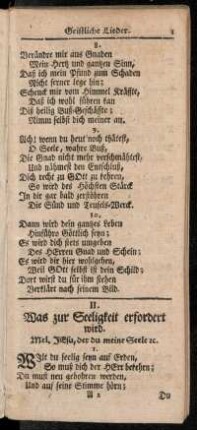 Geistliche Lieder.
8.
Verändre mir aus Gnaden
Mein Hertz und gantzen Sinn,
Daß ich mein Pfund zum Schaden
Nicht ferner lege hin;
Schenck mir vom Himmel Kräffte,
Daß ich wohl führen kan
Diß heilig Buß-Geschäffte;
Nimm selbst dich meiner an.
9.
Ach! wenn du heut noch thätest,
O Seele, wahre Buß,
Die Gnad nicht mehr verschmähtest,
Und nähmest den Entschluß,
Dich recht zu GOtt zu kehren,
So wird des Höchsten Stärck
In dir gar bald zerstöhren
Die Sünd und Teufels-Werck.
10.
Dann wird dein gantzes Leben
Hinführo Göttlich seyn;
Es wird dich stets umgeben
Des HErren Gnad und Schein;
Es wird dir hier wohlgehen,
Weil GOtt selbst ist dein Schild;
Dort wirst du für ihm stehen
Verklärt nach seinem Bild.
II.
Was zur Seeligkeit erfordert
wird.
Mel. JEsu, der du meine Seele ꝛc.
1.
Wilt du seelig seyn auf Erden,
So muß dich der HErr bekehrn;
Du must neu gebohren werden,
Und auf seine Stimme hörn;
Du